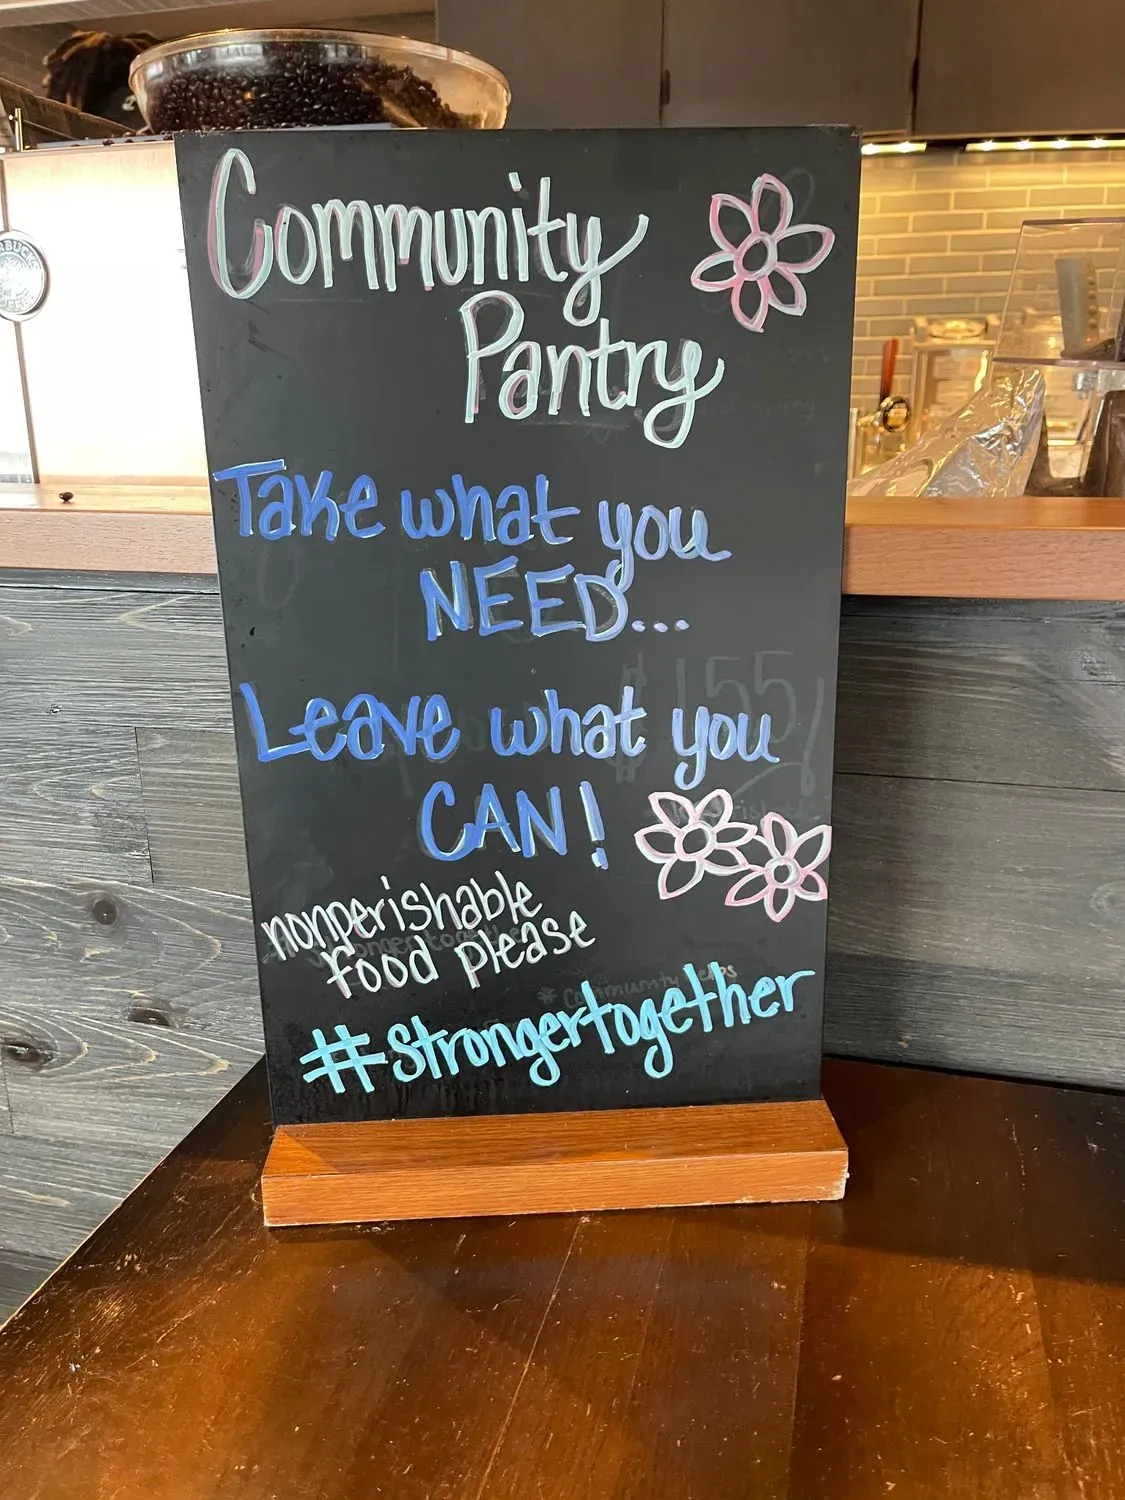 Community
Pantry
Take what you
NEED...
Leave what you
CAN!
nonperishable
food please
#strongertogether
$155